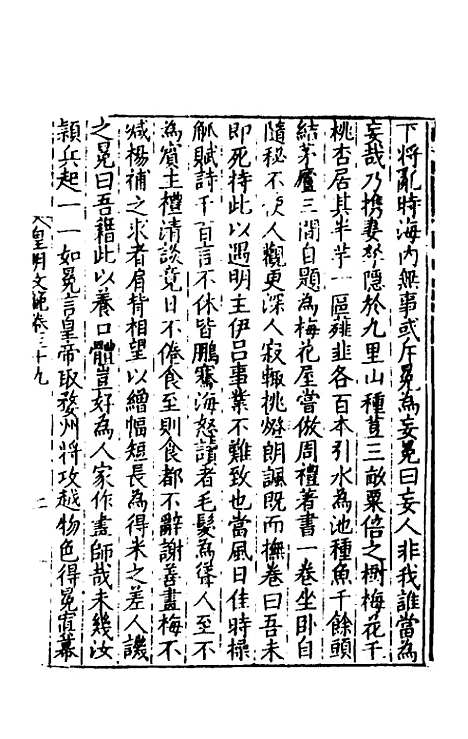 下將亂時海内無事或斥冕為妄冕曰妄人非我誰當為
妄哉乃携妻孥隱於九里山種荳三畝粟倍之樹梅花千
桃杏居其半芋一區薤韭各百本引水為池種魚千餘頭
結茅廬三間自題為梅花屋嘗倣周禮著書一卷坐卧自
隨秘不使人觀更深人寂輙挑燈朗諷既而撫卷曰吾未
即死持此以遇明主伊吕事業不難致也當風日佳時操
觚賦詩千百言不休皆鵬騫海怒讀者毛髮為聳人至不
為賓主禮清談竟日不倦食至則食都不辭謝善畫梅不
減楊補之求者肩背相望以繒幅短長為得米之差人譏
之冕曰吾藉此以養口體豈好為人家作畫師哉未幾汝
頴兵起一一如冕言皇帝取婺州將攻越物色得冕寘幕
皇明文範卷三十九